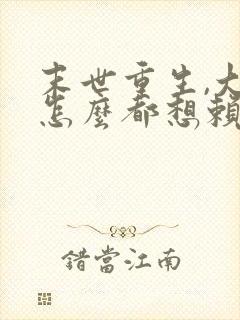 末世重生,大
怎麼都想賴
錯當江南